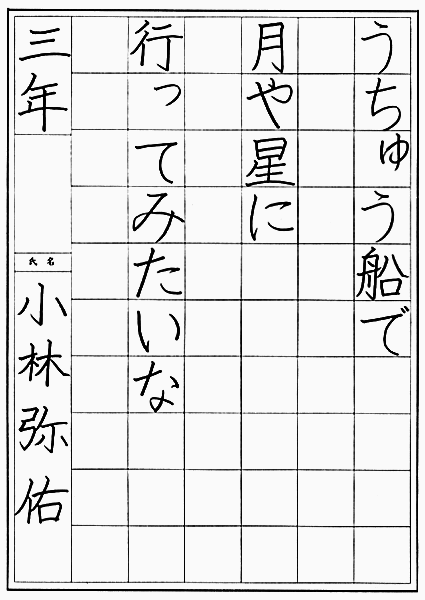 うちゅう船で
月や星に
行ってみたいな
三年
氏名
小林弥佑